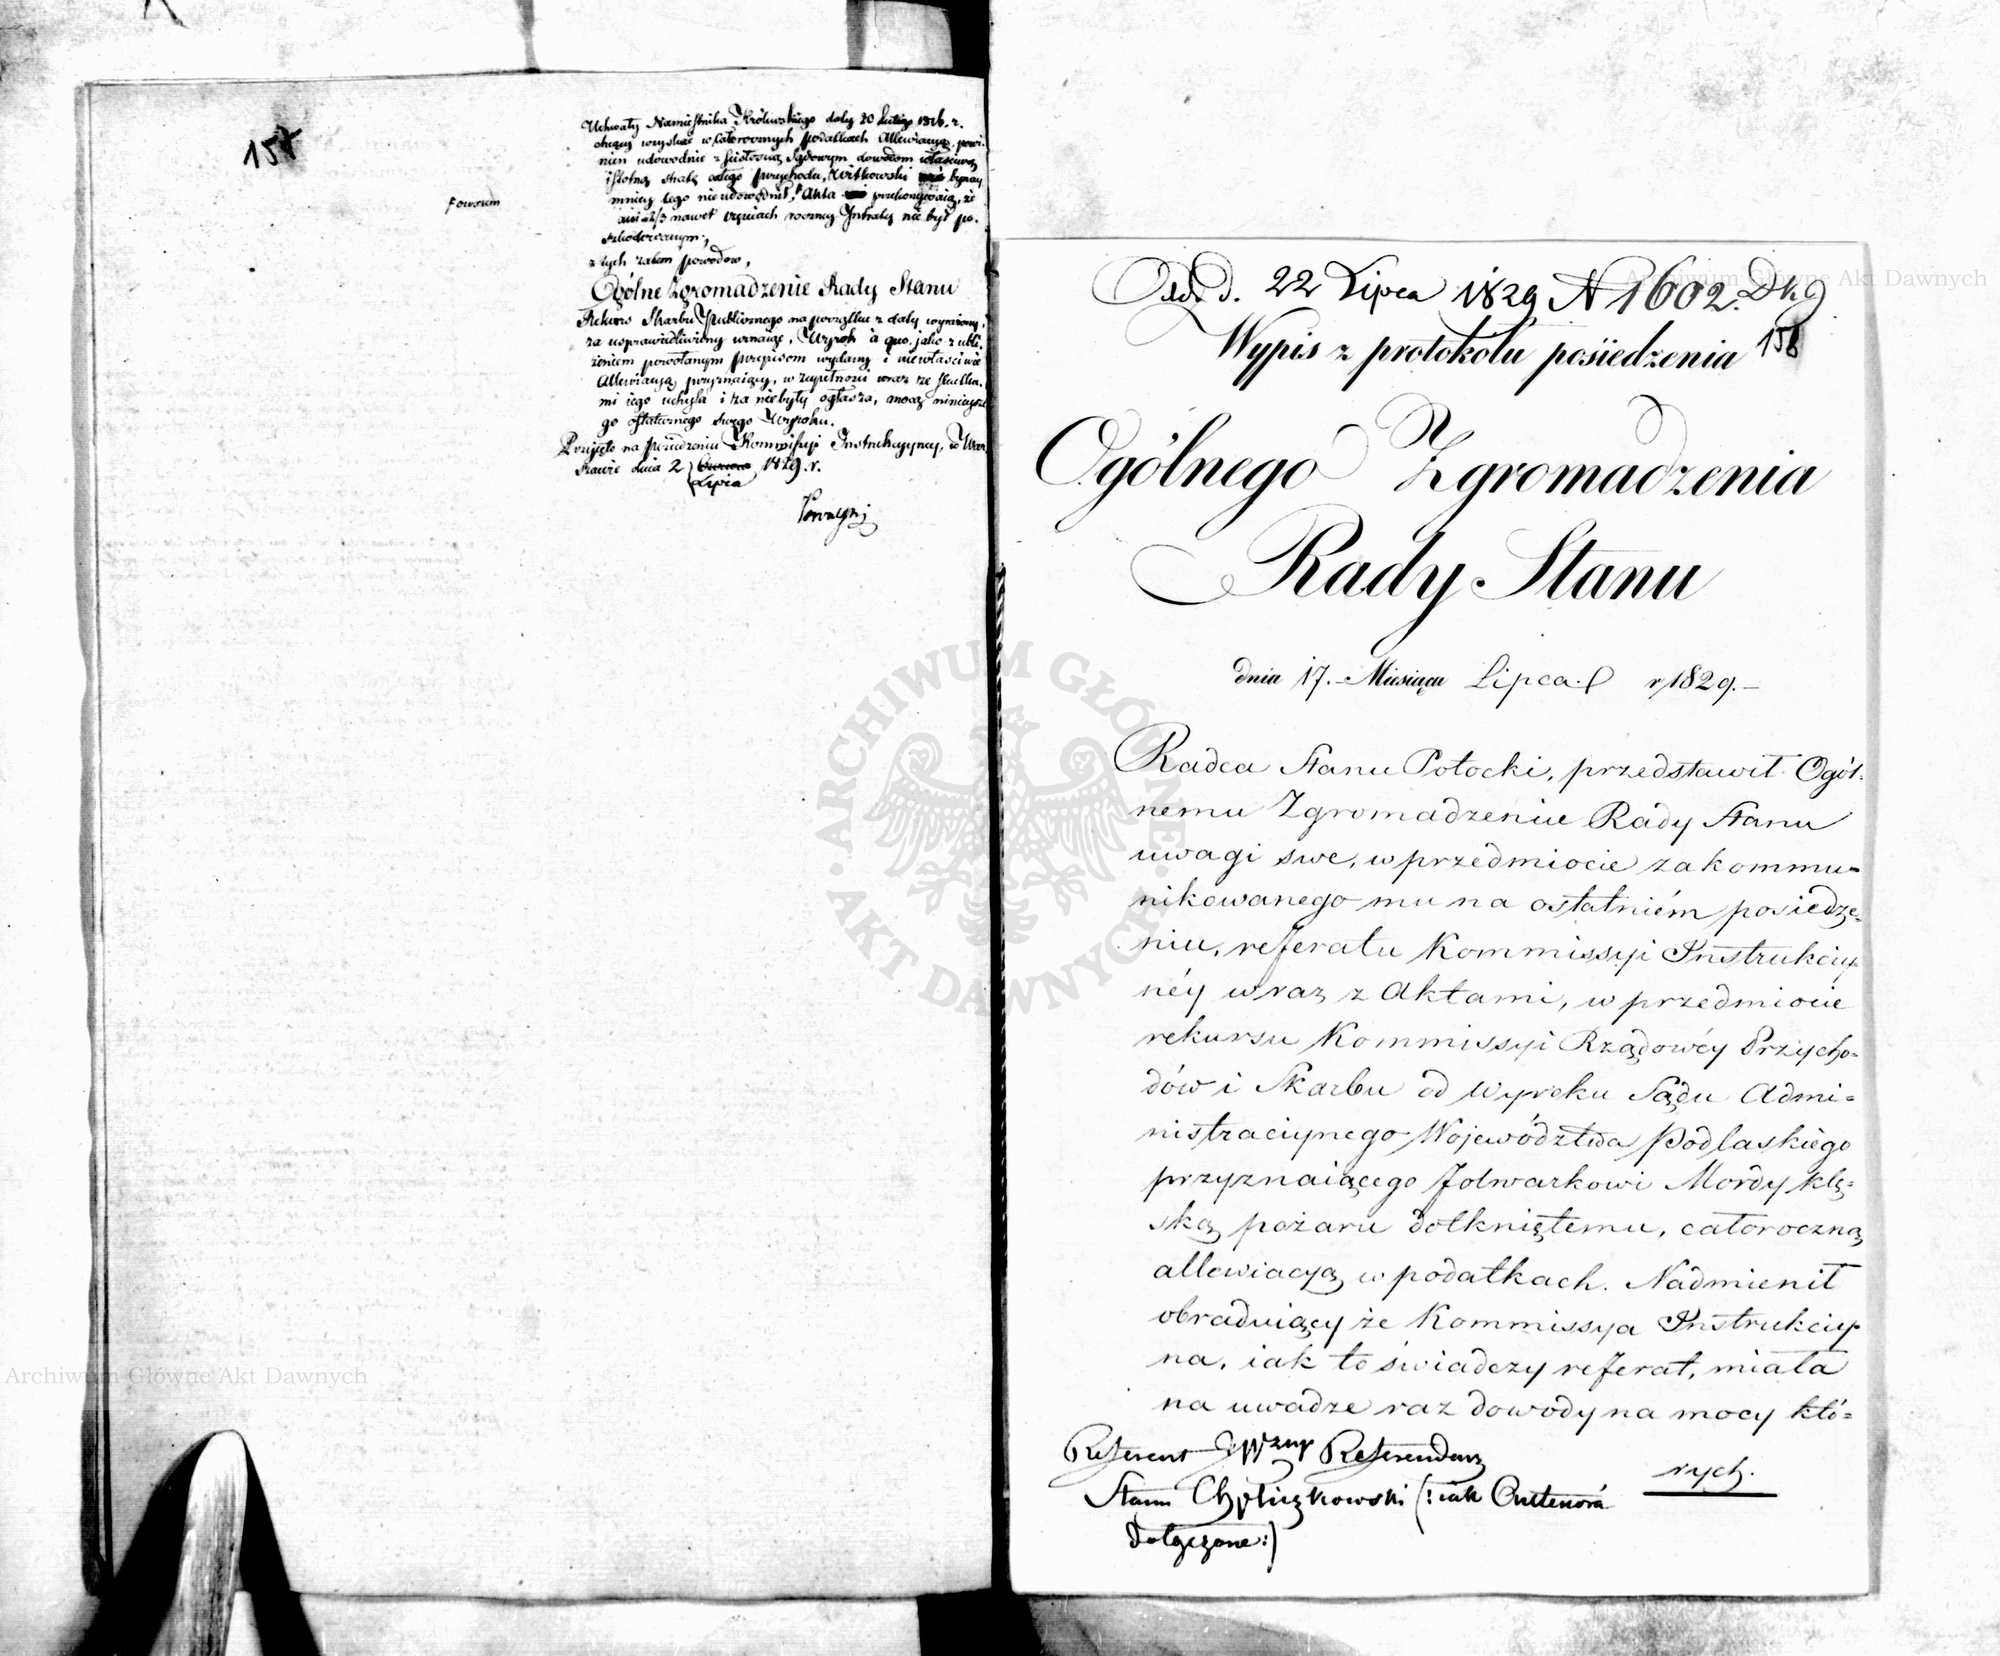 157
Uchwały Namiestnika Królewskiego daty 20 Lutego 1816. r.
chcący wyzyskać w całorocznych podatkach Allewiacyą, powi-
nien udowodnić Sądowym dowodom właściwą
istotną stratę całego przychodu, Witkowski bynay
mniey tego nie udowodnił, Akta przekonywaią, że
ani w 2/3 nawet częściach roczney Intraty nie był po-
szkodowanym;
z tych zatem powodów,
Ogólne Zgromadzenie Rady Stanu
Rekurs Skarbu Publicznego na początku z daty wyrażony,
za usprawiedliwiony uznaie, Wyrok à quo, jako z ubli-
żeniem powołanym przepisom wydany i niewłaściwie
Allewiacyą przyznaiący, w zupełności wraz ze skutka-
mi iego uchyla i za niebyły ogłasza, mocą ninieysze
go ostatecznego swego Wyroku.
Przyjęto na posiedzeniu Kommissyi Instrukcyiney, w War
szawie dnia 2 Lipca 1829. r.
d. 22 Lipca 1829 N 1602.
Wypis z protokołu posiedzenia 158
Ogólnego Zgromadzenia
Rady Stanu
dnia 17. Miesiąca Lipca. r 1829.
Radca Stanu Potocki, przedstawił Ogól-
nemu Zgromadzeniu Rady Stanu
uwagi swe, w przedmiocie zakommu-
nikowanego mu na ostatniém posiedze-
niu, referatu Kommissyi Instrukcyi-
néy wraz z Aktami, w przedmiocie
rekursu Kommissyi Rządowéy Przycho-
dów i Skarbu od Wyroku Sądu Admi-
nistracyinego Województwa Podlaskiego
przyznaiącego folwarkowi Mordy klę-
ską pożaru dotkniętemu, całoroczną
allewiacyą w podatkach. Nadmienił
obraduiący że Kommissya Instrukcyi-
na, iak to świadczy referat, miała
na uwadze raz dowody na mocy któ-
rych.
Referent Referendarz
Stanu
dołączone:)